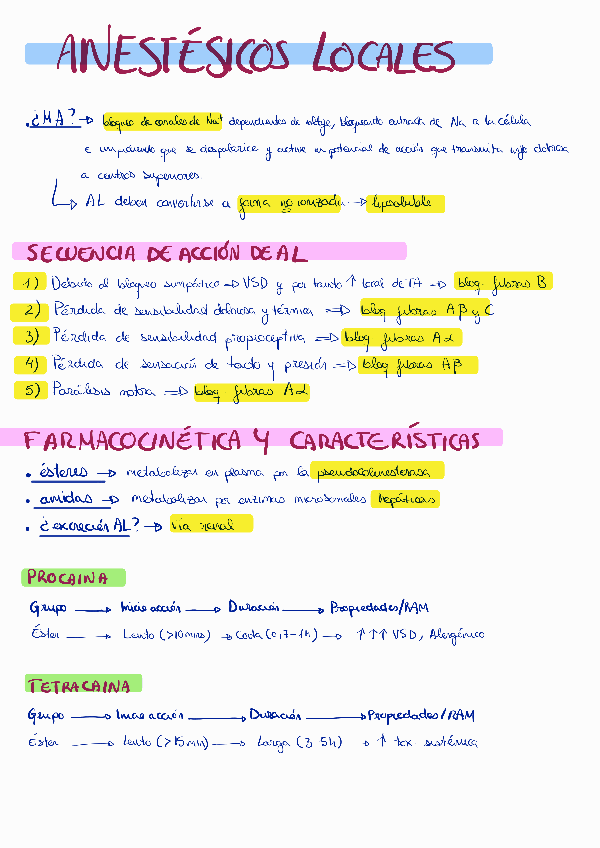 ANESTÉSICOS LOCALES
• ¿MA? → bloqueo de canales de Na+ dependientes de voltaje, bloqueando entrada de Na a la célula
e impidiendo que se despolarice y active un potencial de acción que transmita info dolorosa
a centros superiores
↳ AL deben convertirse a forma no ionizada → liposoluble
SECUENCIA DE ACCIÓN DE AL
1) Debido al bloqueo simpático → VSD y por tanto ↑ local de Tª → bloq. fibras B
2) Pérdida de sensibilidad dolorosa y térmica ⇒ bloq fibras Aβ y C
3) Pérdida de sensibilidad propioceptiva ⇒ bloq fibras Aα
4) Pérdida de sensación de tacto y presión ⇒ bloq fibras Aβ
5) Parálisis motora ⇒ bloq fibras Aα
FARMACOCINÉTICA Y CARACTERÍSTICAS
• ésteres → metabolizar en plasma por la pseudocolinesterasa
• amidas → metabolizar por enzimas microsomales hepáticas
• ¿excreción AL? → vía renal
PROCAINA
Grupo → Inicio acción → Duración → Propiedades/RAM
Éster → Lento (>10mins) → Corta (0,7-1h) → ↑↑↑ VSD, Alergénico
TETRACAINA
Grupo → Inicio acción → Duración → Propiedades/RAM
Éster → Lento (>15min) → Larga (3-5h) → ↑ tox sistémica